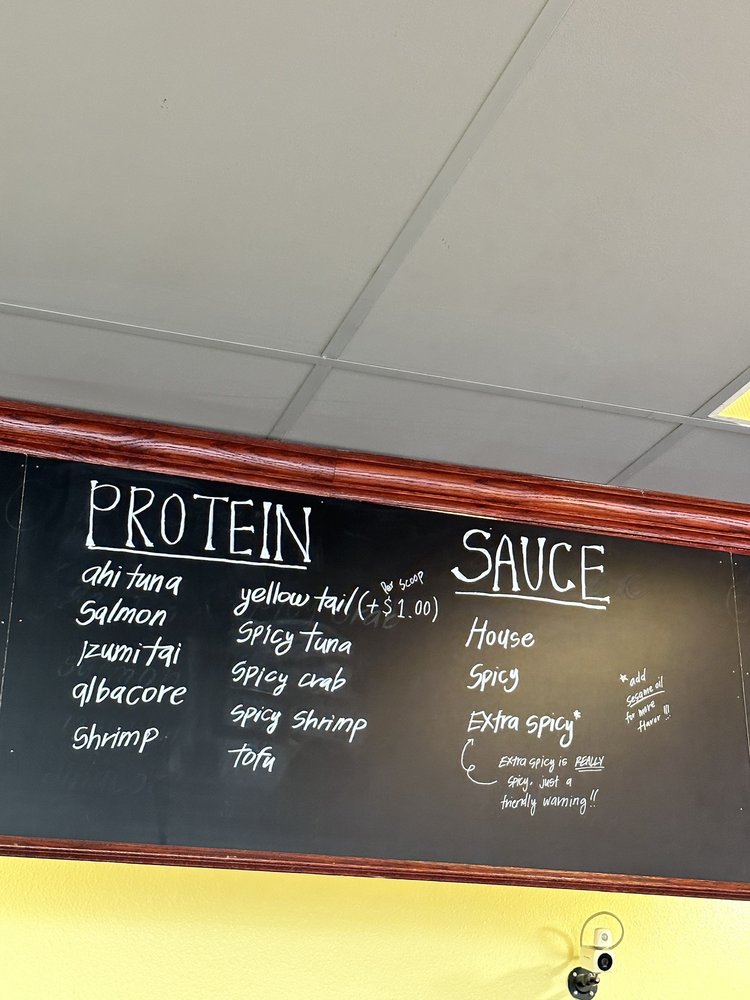 PROTEIN
ahi tuna
Salmon
izumi tai
albacore
Shrimp
Per scoop
yellow tail (+$1.00)
Spicy tuna
Spicy crab
Spicy Shrimp
tofu
SAUCE
House
Spicy
Extra spicy*
Extra spicy is REALLY
spicy, just a
friendly warning!!
*add
sesame oil
for more
flavor!!!